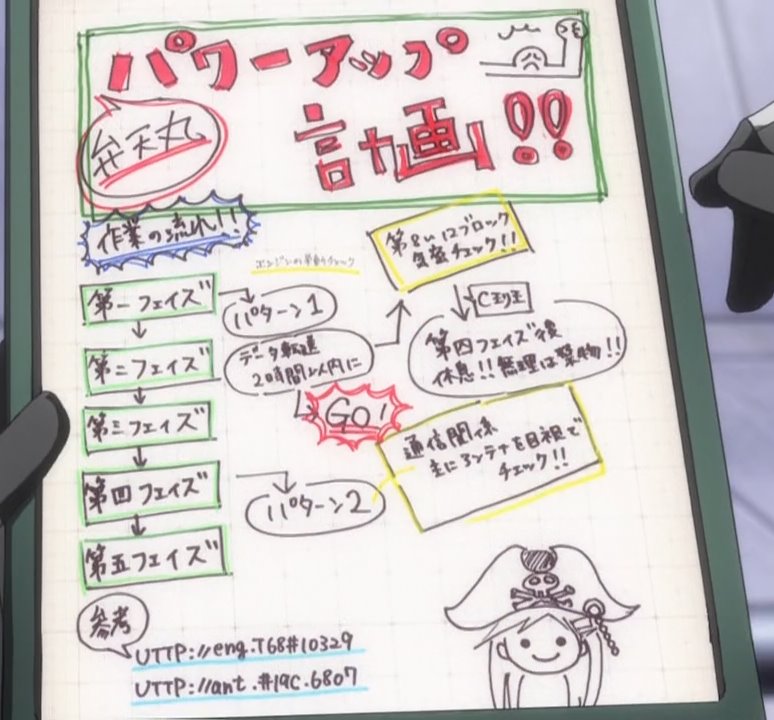 パワーアップ
計画!!
弁天丸
作業の流れ!!
エンジンの挙動チェック
第一フェイズ
パターン1
第二フェイズ
データ転送
2時間以内に
GO!
第三フェイズ
第四フェイズ
パターン2
第五フェイズ
ブロック
気密チェック!!
C環境
第四フェイズ後
休息!!無理は禁物!!
通信関係
主にアンテナを目視で
チェック!!
参考
UTTP://eng.T68#10329
UTTP://ant.#19C.6807